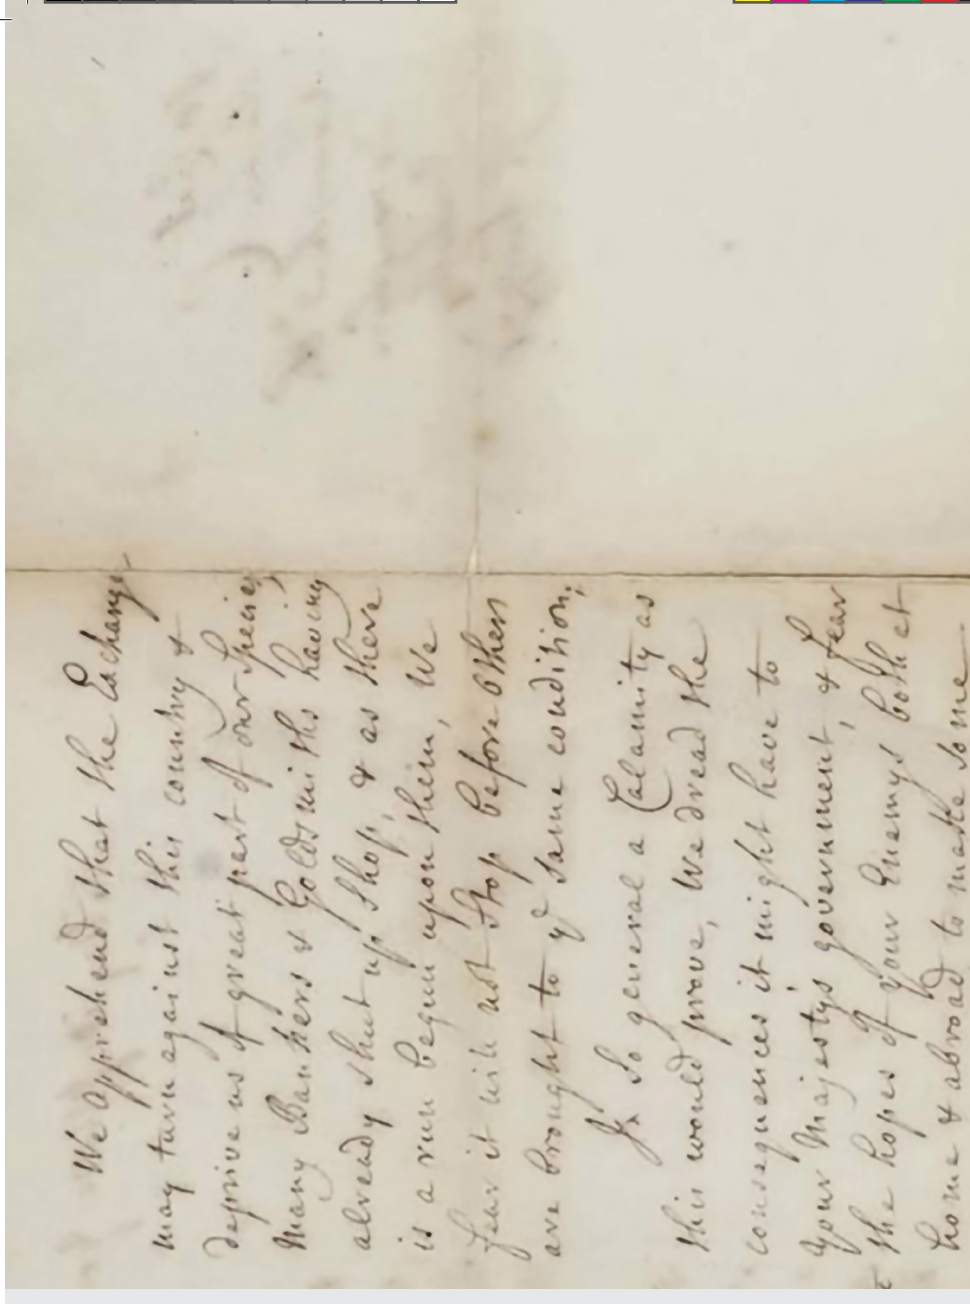 We apprehend that the Exchange
may turn against this country &
deprive us of great part of our Specie,
Many Bankers & Goldsmiths having
already shut up shop, & as there
is a run begun upon them, We
fear it will not stop before others
are brought to yͤ same condition,
In So general a Calamity as
this would prove, We dread the
consequences it might have to
your Majestys government, & fear
the hopes of your Enemys both at
home & abroad to make some